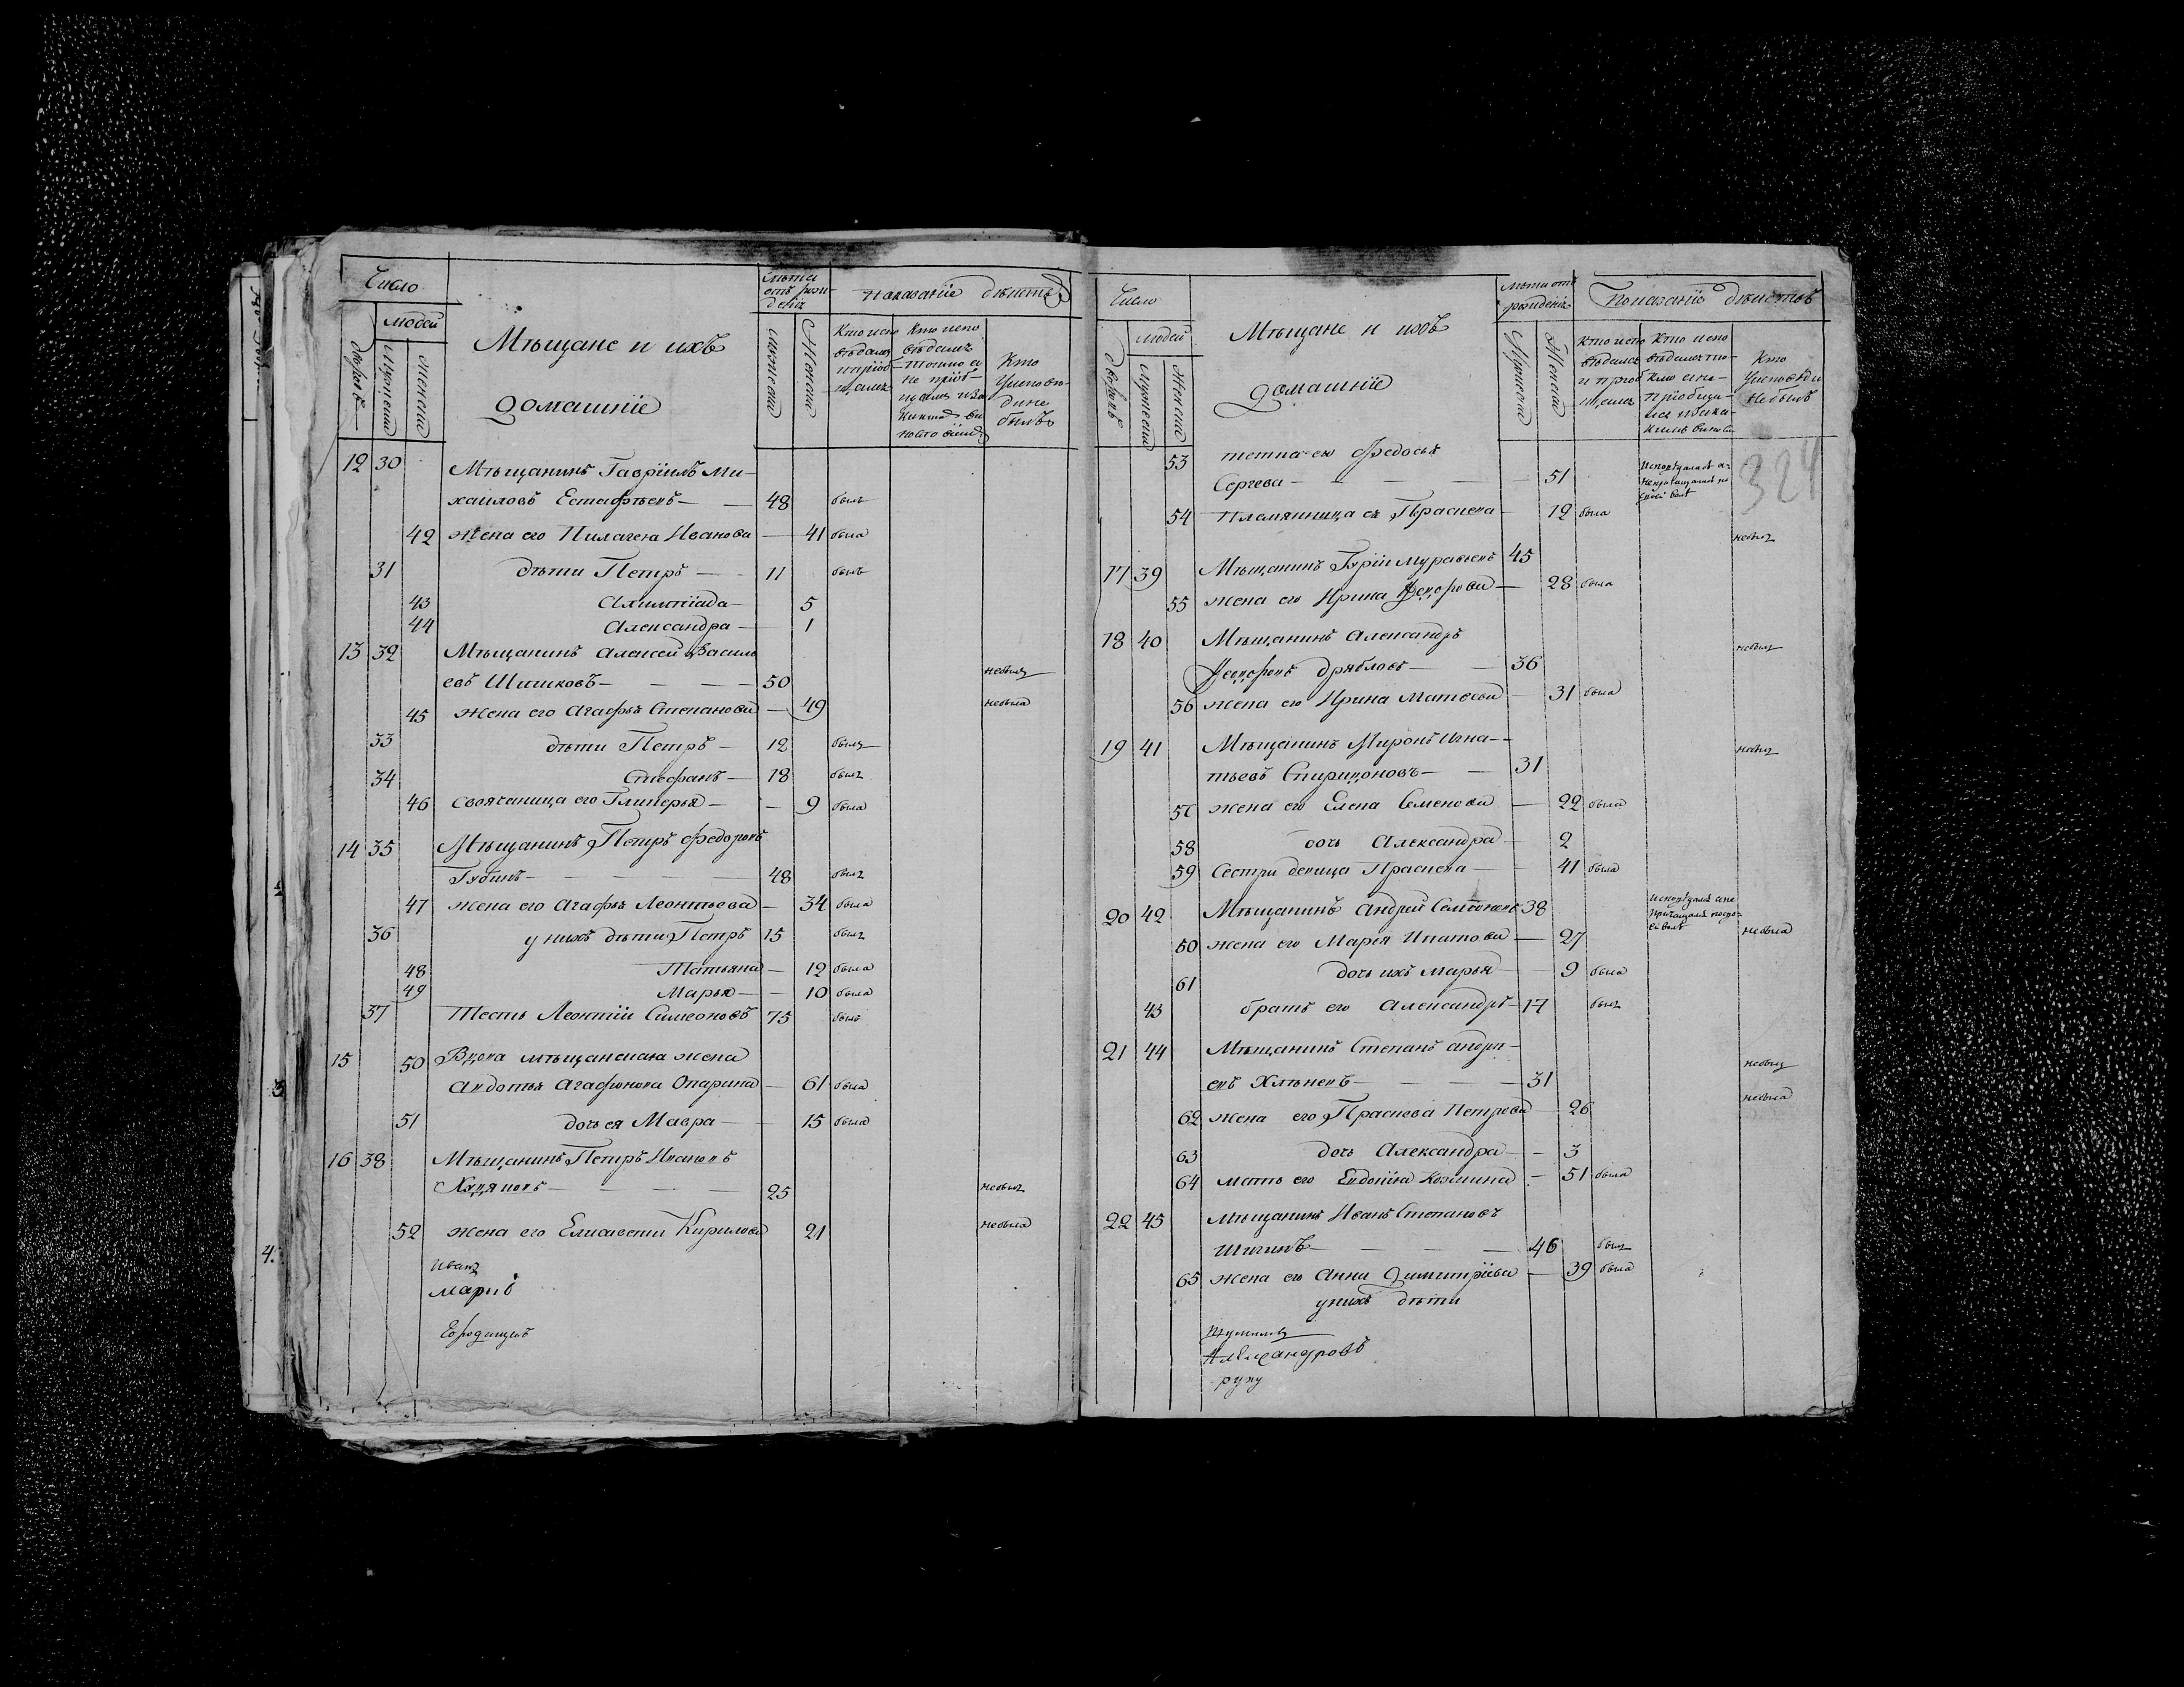 Число
Лѣта отъ рожденія
показаніе дѣйства
людей
Мѣщане и ихъ
домашніе
дворовъ
мужеска
женска
мужеска
женска
Кто испо
вѣдался
и пріоб
щался
Кто испо
вѣдался
токмо а
не пріоб
щался
Кто
Уисповѣ
ди не
былъ
12 30 Мѣщанинъ Гавріилъ Ми-
хаиловъ Естафьевъ — 48 былъ
42 жена его Пилагея Иванова — 41 была
31 дѣти Петръ — 11 былъ
43 Алимпіада — 5
44 Александра — 1
13 32 Мѣщанинъ Алексей Василь
евъ Шишковъ — — — — 50 небылъ
45 жена его Агафья Степанова — 49 небыла
33 дѣти Петръ — 12 былъ
34 Стефанъ — 18 былъ
46 своячаница его Гликерья — — 9 была
14 35 Мѣщанинъ Петръ Федоровъ
Губинъ — — — — — 48 былъ
47 жена его Агафья Леонтьева — 34 была
36 у нихъ дѣти Петръ 15 былъ
48 Татьяна — 12 была
49 Марья — — 10 была
37 Тесть Леонтіи Симеоновъ 75 былъ
15 50 Вдова мѣщанская жена
Авдотья Агафонова Опарина — 61 была
51 дочь ея Мавра — — 15 была
16 38 Мѣщанинъ Петръ Ивановъ
Худяковъ — — — — 25 небылъ
52 жена его Елисавета Кирилова 21 небыла
Иванъ
Марій
Число
лѣта отъ
рожденія
Показаніе дѣйства
людей
Мѣщане и ихъ
домашніе
дворовъ
мужеска
женска
Мужеска
Женска
Кто испо
вѣдался
и пріоб
щался
Кто испо
вѣдался то-
кмо а не
пріобщи-
Кто
Уисповѣди
небылъ
324
53 тетка ея Федосья
Сергева — — — — — 51
54 Племянница ея Прасковя — 12 была
17 39 Мѣщанинъ Гуріи Муравьевъ 45 небылъ
55 жена его Ирина Федорова — 28 была
18 40 Мѣщанинъ Александръ
Федоровъ Дрябловъ — — 36 небылъ
56 жена его Ирина Матвева — 31 была
19 41 Мѣщанинъ Миронъ Игна-
тьевъ Спиридоновъ — — 31 небылъ
57 жена его Елена Семенова — 22 была
58 дочь Александра — 2
59 Сестра девица Праскева — — 41 была
20 42 Мѣщанинъ Андрей Семеновъ 38
60 жена его Марѳа Ипатова — 27 небыла
61 дочь ихъ Марья — — 9 была
43 братъ его Александръ — 17 былъ
21 44 Мѣщанинъ Степанъ Андре-
евъ — — — — 31 небылъ
62 жена его Праскева Петрова — 26 небыла
63 дочь Александра — — 3
64 мать его Евдокіа Козмина — 51 была
22 45 мѣщанинъ Иванъ Степановъ
Шигинъ — — — — 46 былъ
65 жена его Анна Димитріева — 39 была
у нихъ дѣти
Александровъ
руку